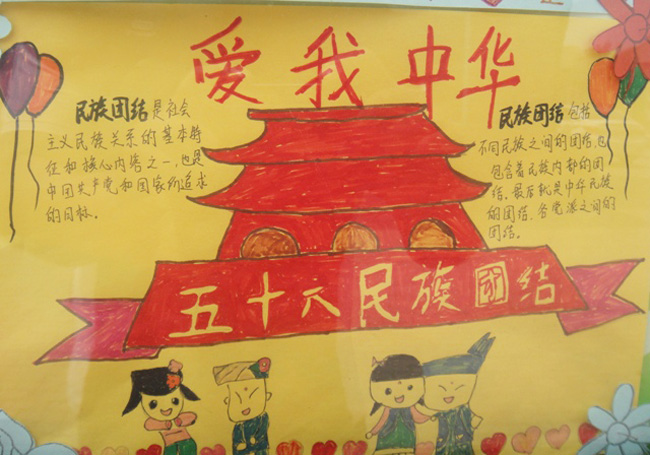 爱我中华
民族团结是社会
主义民族关系的基本特
征和核心内容之一,也是
中国共产党和国家所追求
的目标。
民族团结包括
不同民族之间的团结,也
包含着民族内部的团
结。最后就是中华民族
的团结,各党派之间的
团结。
五十六民族团结